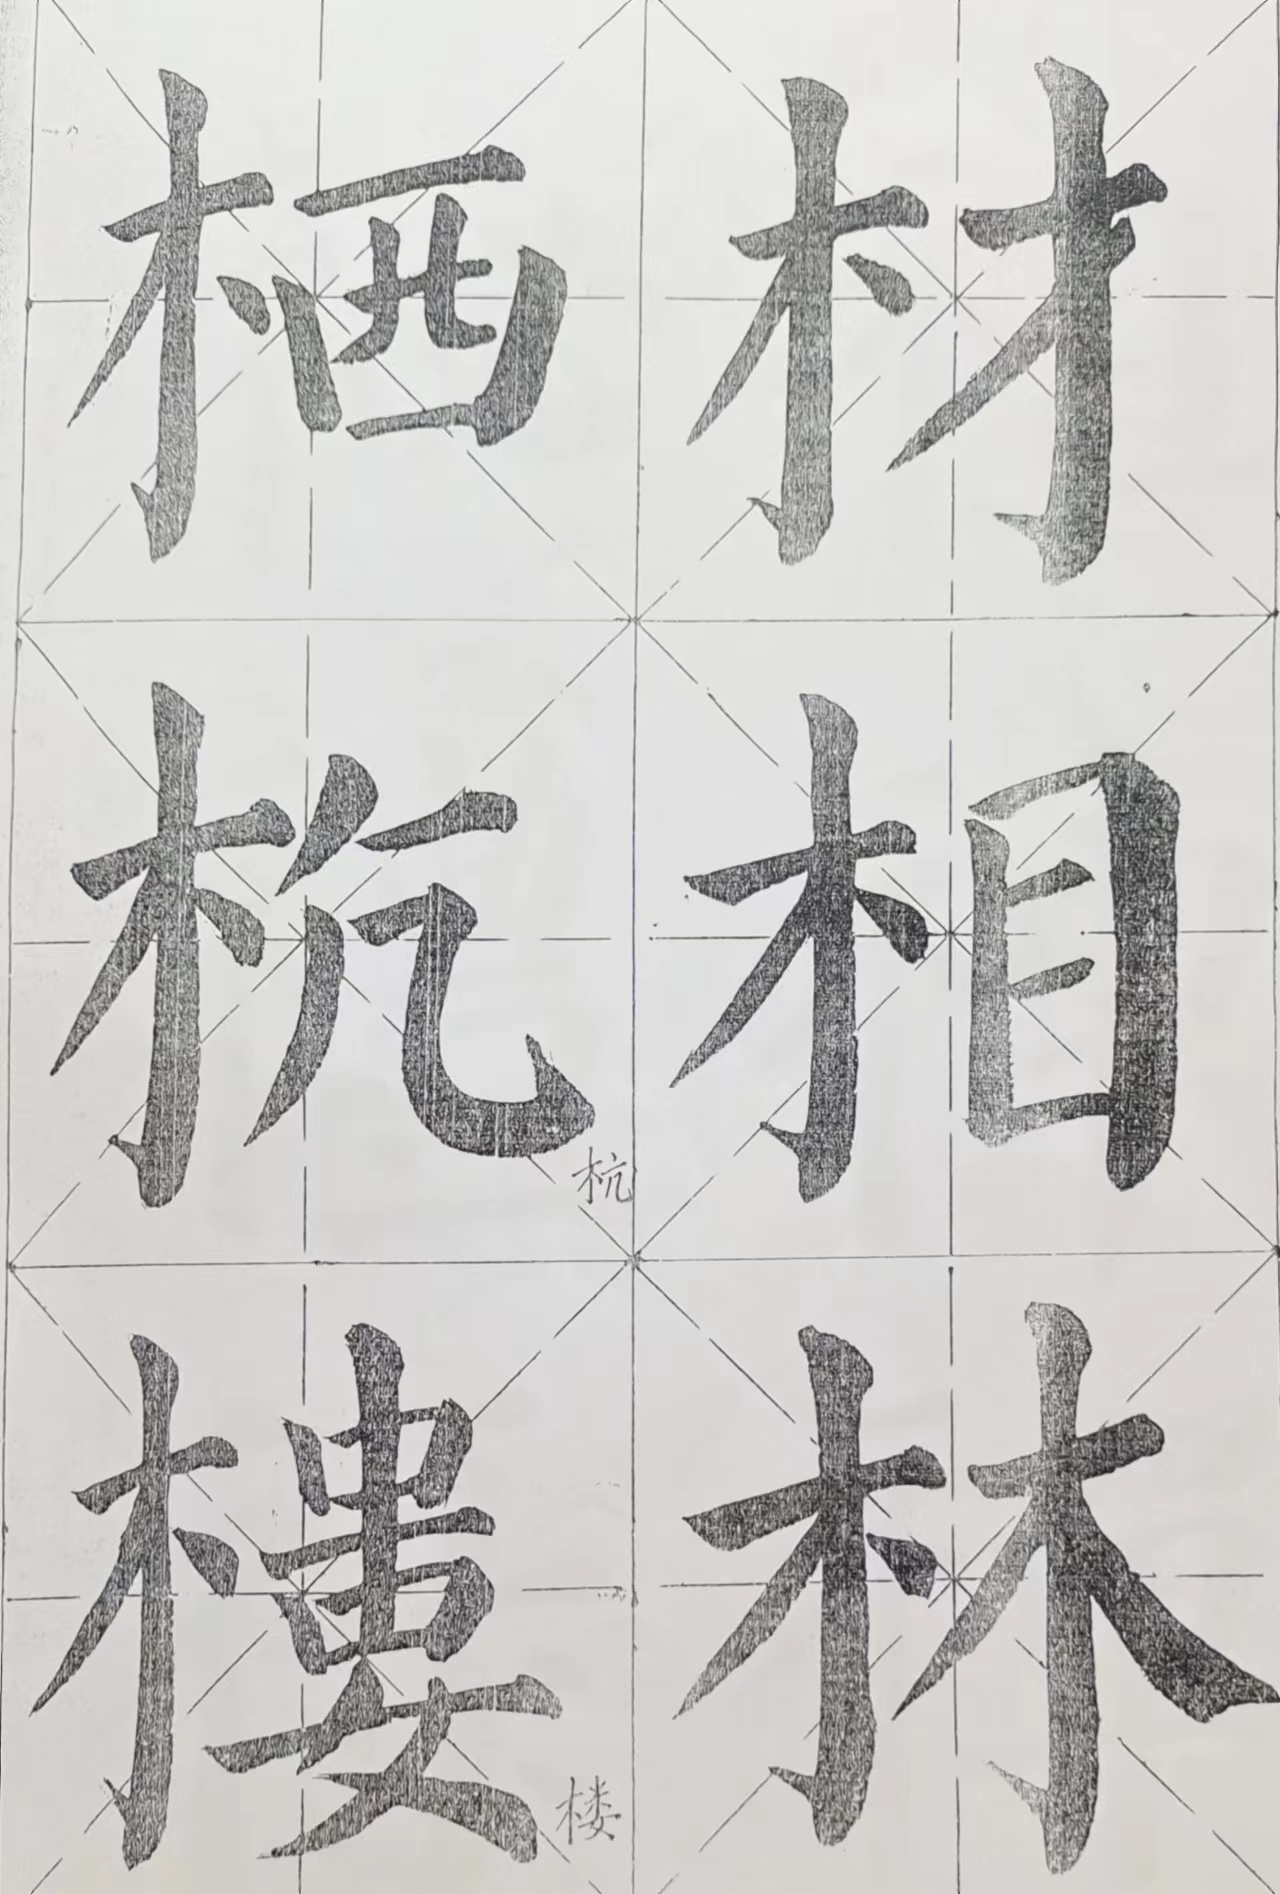 栖材
杭相
杭
樓林
楼